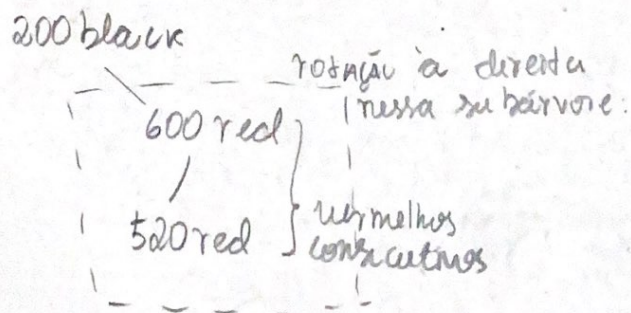 200 black
rotação à direita
nessa subárvore.
600 red
520 red
vermelhos
consecutivos